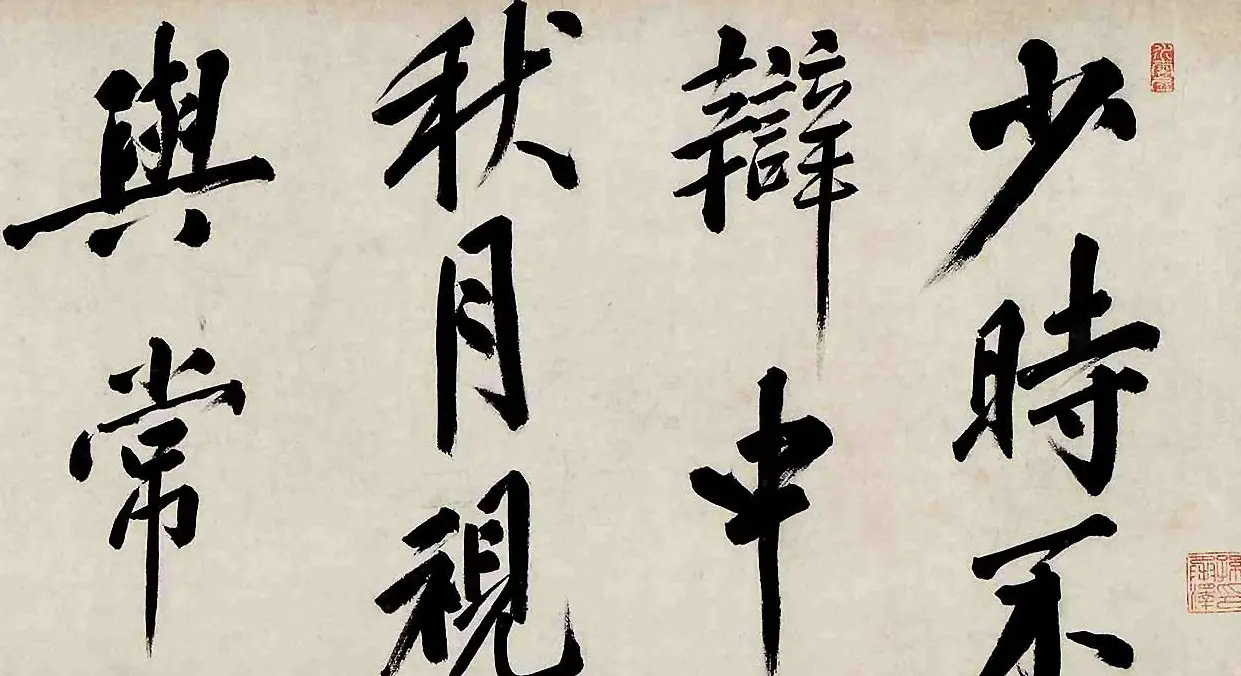 少時不
辯中
秋月視
與常